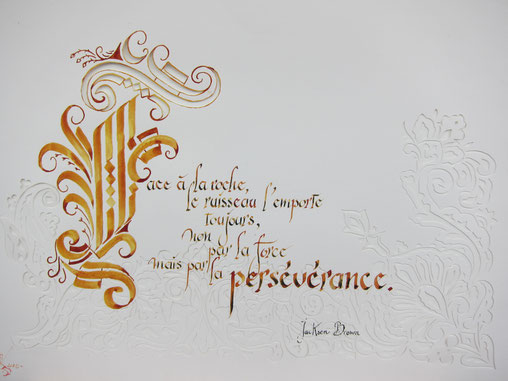 Face à la roche,
le ruisseau l'emporte
toujours,
non
par la force
mais par la
persévérance.
Jackson Brown